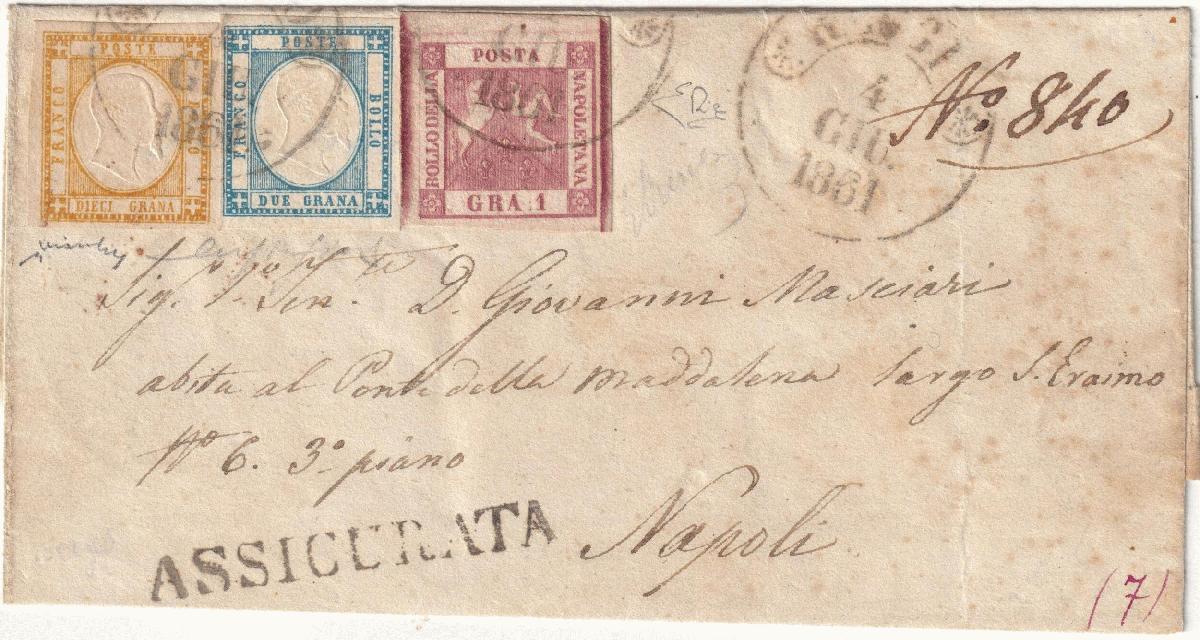 POSTE
FRANCO
BOLLO
DIECI GRANA
POSTE
FRANCO
BOLLO
DUE GRANA
POSTA
BOLLO DELLA
NAPOLETANA
GRA 1
GIU
1861
GIU
1861
4
GIU.
1861
No. 840
Sig. D. Giovanni Masciari
abita al Ponte della Maddalena largo S. Eraimo
No 6. 3o piano
Napoli
ASSICURATA
(7)